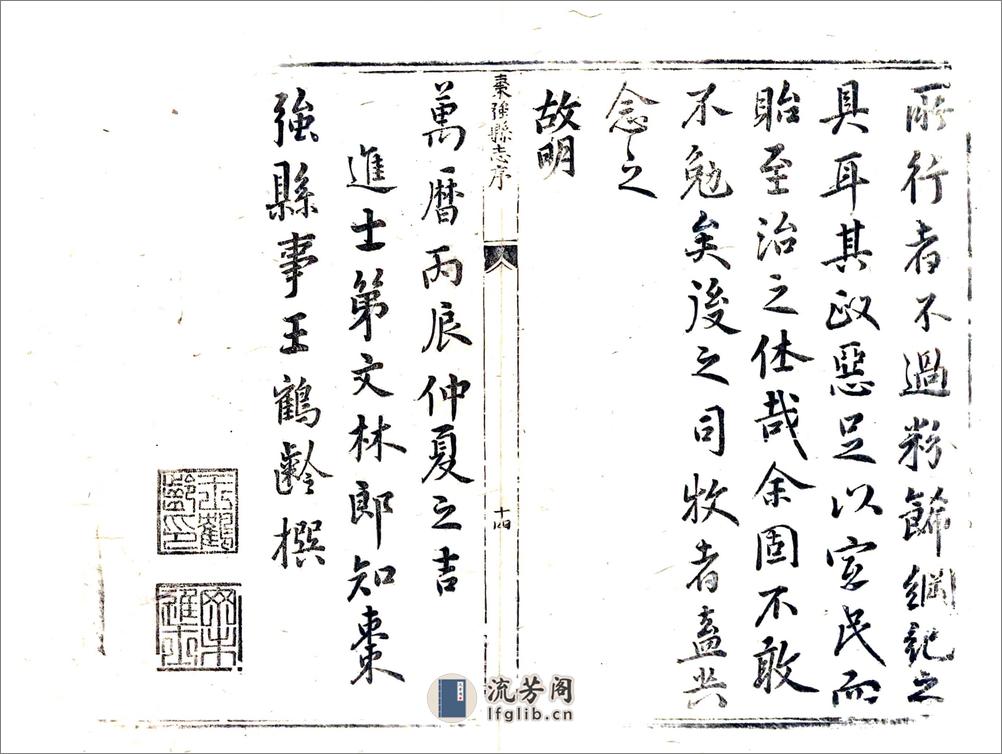 所行者不過粉飾綱紀之
具耳其政惡足以宜民而
貽至治之休哉余固不敢
不勉矣後之司牧者盍共
念之
故明
棗強縣志序
十四
萬曆丙辰仲夏之吉
進士第文林郎知棗
強縣事王鶴齡撰
王鶴齡印
進士
流芳阁
lfglib.cn